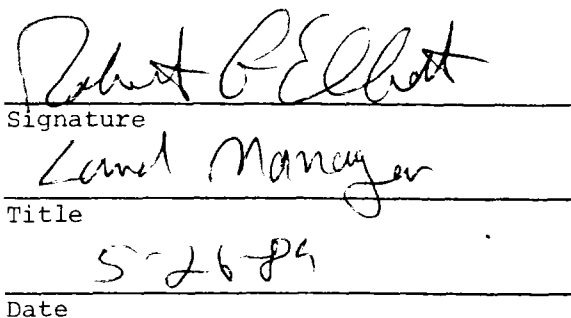 Robert P Elliott
Signature
Land Manager
Title
5-26-89
Date